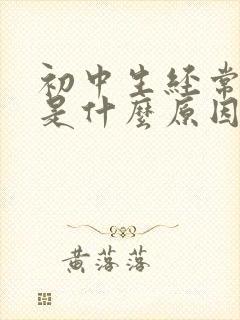 初中生経常
是什麼原因
黄落落